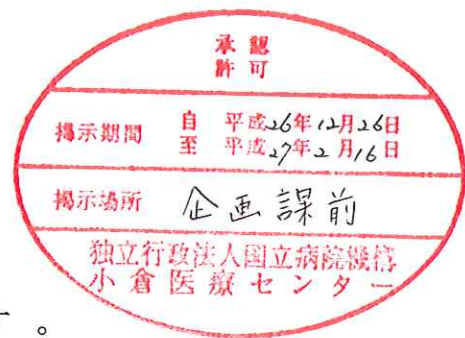 承認
許可
掲示期間 自 平成26年12月26日
至 平成27年2月16日
掲示場所 企画課前
独立行政法人国立病院機構
小倉医療センター
。